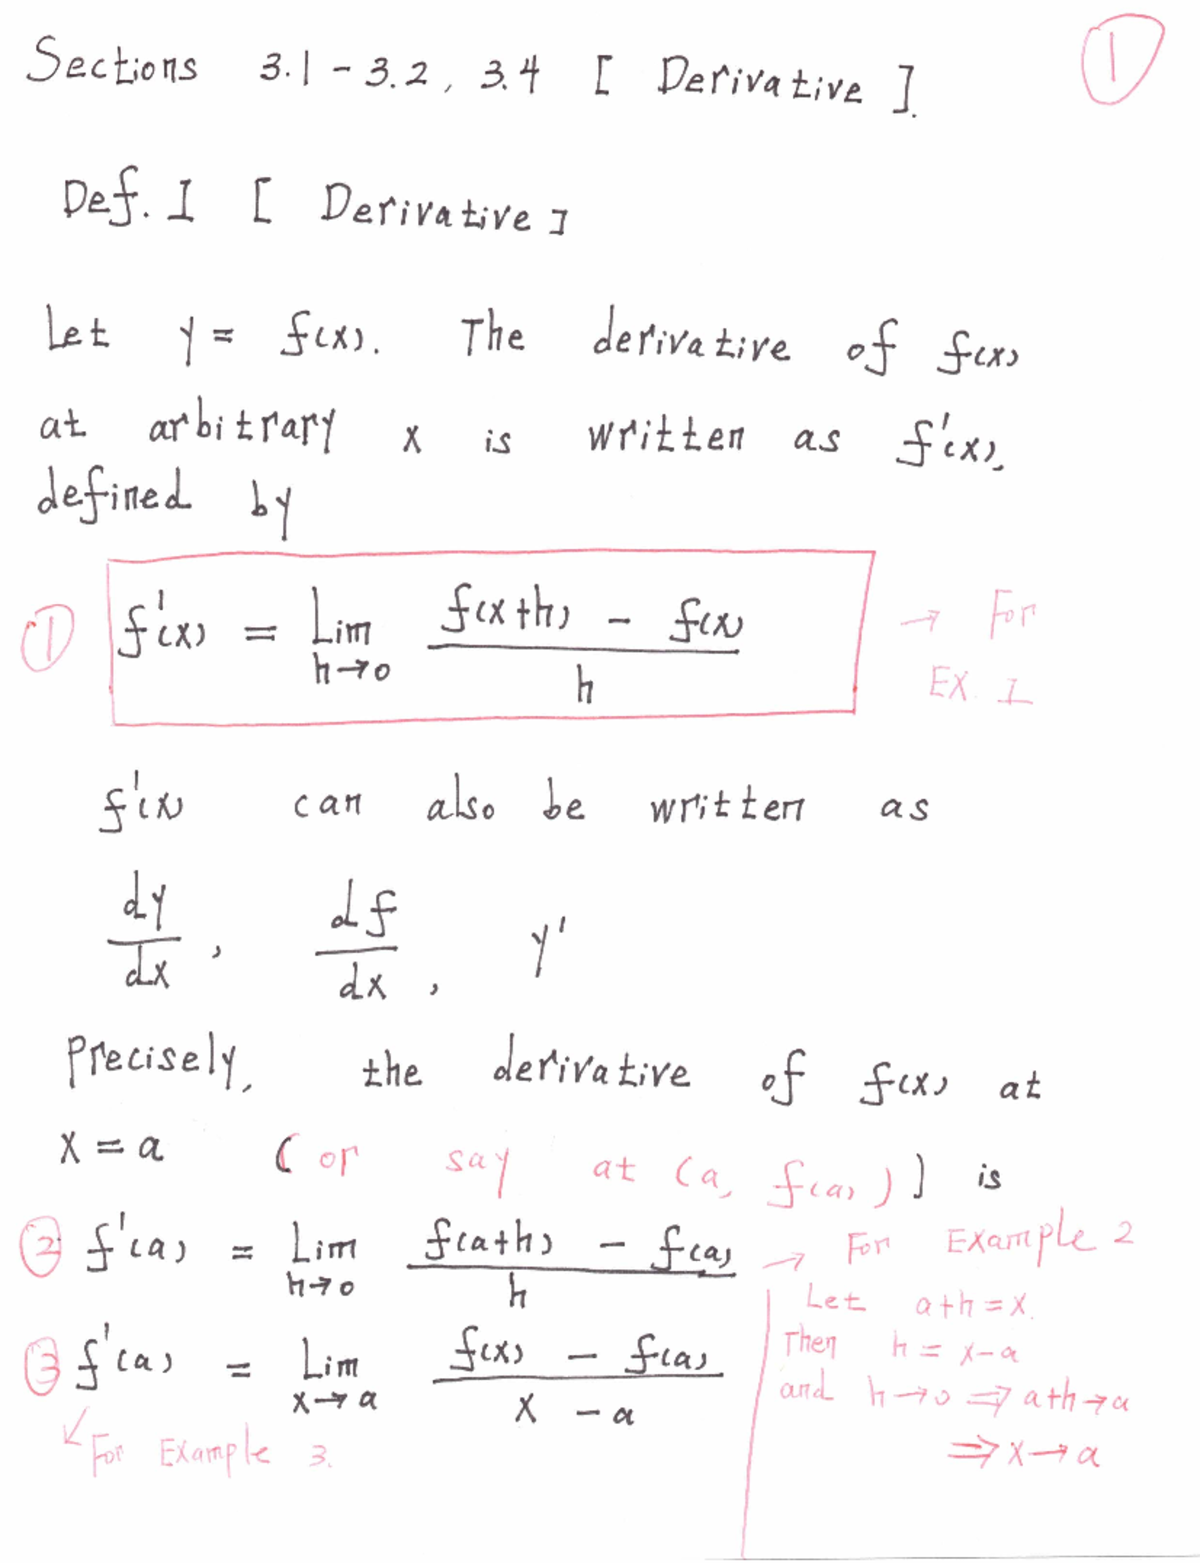 Sections 3.1 - 3.2, 3.4 [ Derivative ].
①
Def. 1 [ Derivative ]
Let y = f(x). The derivative of f(x)
at arbitrary x is written as f'(x),
defined by
① f'(x) = Lim h→0 (f(x+h) - f(x)) / h → For Ex. 1
f'(x) can also be written as
dy/dx, df/dx, y'
Precisely, the derivative of f(x) at
x = a (or say at (a, f(a))) is
② f'(a) = Lim h→0 (f(a+h) - f(a)) / h → For Example 2
③ f'(a) = Lim x→a (f(x) - f(a)) / (x - a)
↙ For Example 3.
Let a+h = x.
Then h = x-a
and h→0 ⇒ a+h→a
⇒ x→a